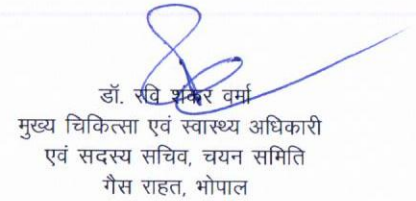 डॉ. रवि शंकर वर्मा
मुख्य चिकित्सा एवं स्वास्थ्य अधिकारी
एवं सदस्य सचिव, चयन समिति
गैस राहत, भोपाल